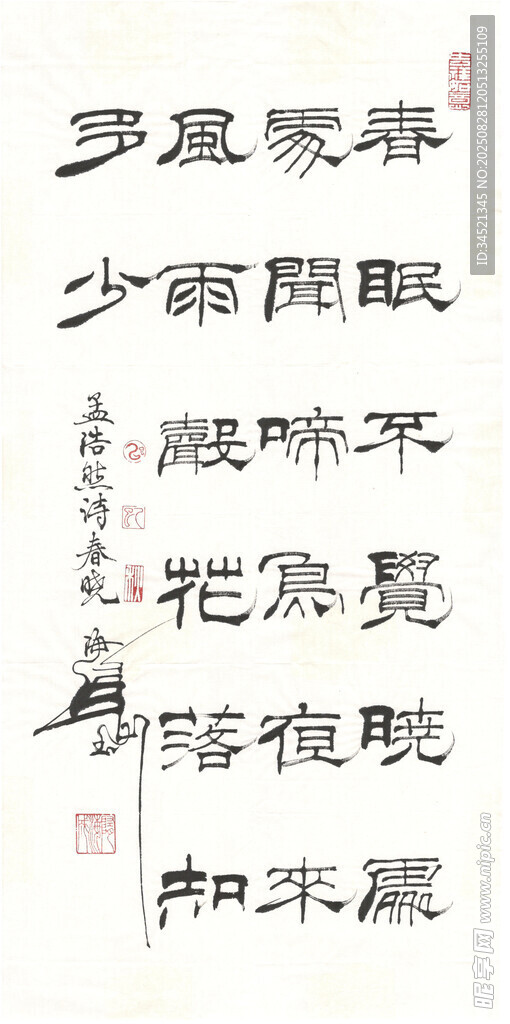 春眠不覺曉處
處聞啼鳥夜來
風雨聲花落知
多少
孟浩然诗春晓
吉祥如意
ID:34521345 NO:20250828120513255109
昵享网 www.nipic.cn